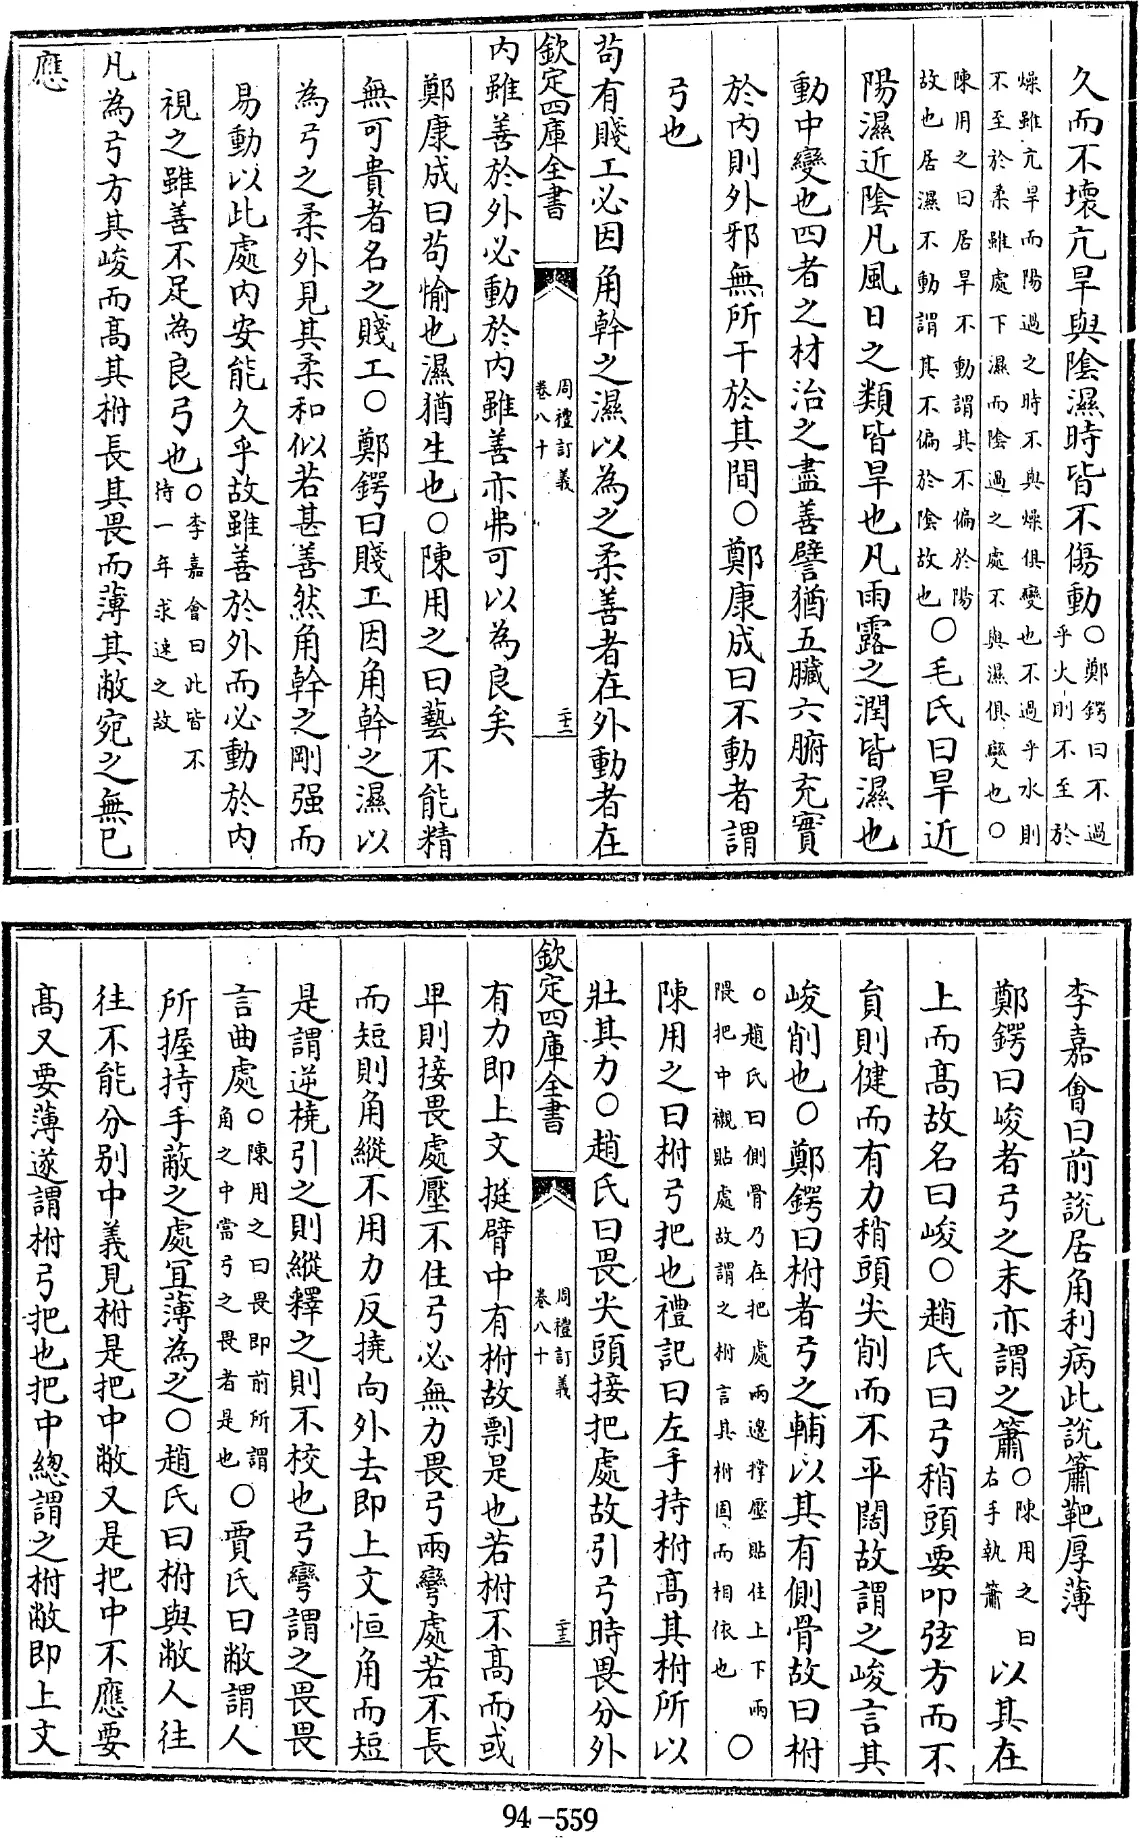 久而不壞亢旱與陰濕時皆不傷動〇鄭鍔曰不過乎火則不至於
燥雖亢旱而陽過之時不與燥俱變也不過乎水則不至於柔雖處下濕而陰過之處不與濕俱變也〇
陳用之曰居旱不動謂其不偏於陽故也居濕不動謂其不偏於陰故也〇毛氏曰旱近
陽濕近陰凡風日之類皆旱也凡雨露之潤皆濕也
動中變也四者之材治之盡善譬猶五臟六腑充實
於内則外邪無所干於其間〇鄭康成曰不動者謂
弓也
茍有賤工必因角幹之濕以為之柔善者在外動者在
欽定四庫全書 周禮訂義 卷八十 二十二
内雖善於外必動於内雖善亦弗可以為良矣
鄭康成曰茍愉也濕猶生也〇陳用之曰藝不能精
無可貴者名之賤工〇鄭鍔曰賤工因角幹之濕以
為弓之柔外見其柔和似若甚善然角幹之剛强而
易動以此處内安能久乎故雖善於外而必動於内
視之雖善不足為良弓也〇李嘉會曰此皆不待一年求速之故
凡為弓方其峻而髙其柎長其畏而薄其敝宛之無已
應
李嘉會曰前說居角利病此說簫靶厚薄
鄭鍔曰峻者弓之末亦謂之簫〇陳用之曰右手執簫以其在
上而髙故名曰峻〇趙氏曰弓稍頭要叩弦方而不
員則健而有力稍頭尖削而不平闊故謂之峻言其
峻削也〇鄭鍔曰柎者弓之輔以其有側骨故曰柎
〇趙氏曰側骨乃在把處兩邊撑壓貼住上下兩隈把中襯貼處故謂之柎言其柎固而相依也〇
陳用之曰柎弓把也禮記曰左手持柎髙其柎所以
壯其力〇趙氏曰畏尖頭接把處故引弓時畏分外
欽定四庫全書 周禮訂義 卷八十 二十三
有力即上文挺臂中有柎故剽是也若柎不髙而或
卑則接畏處壓不住弓必無力畏弓兩彎處若不長
而短則角縱不用力反撓向外去即上文恒角而短
是謂逆橈引之則縱釋之則不校也弓彎謂之畏畏
言曲處〇陳用之曰畏即前所謂角之中當弓之畏者是也〇賈氏曰敝謂人
所握持手敝之處宜薄為之〇趙氏曰柎與敝人往
往不能分别中義見柎是把中敝又是把中不應要
髙又要薄遂謂柎弓把也把中總謂之柎敝即上文
94-559